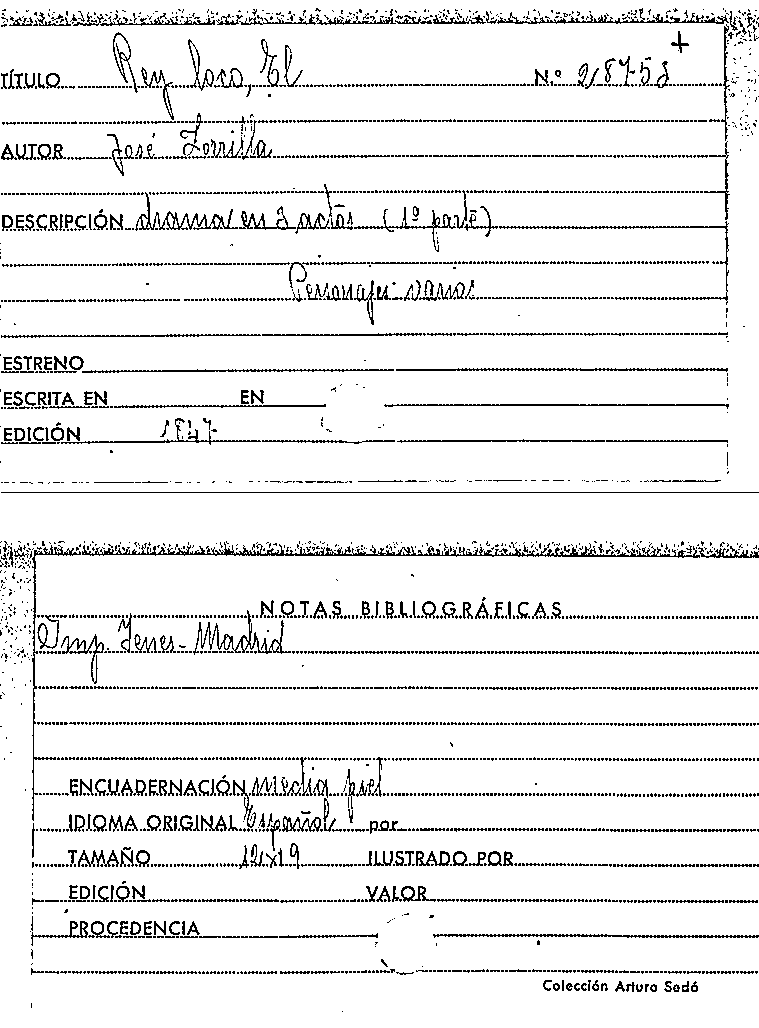 +
TÍTULO Rey loco, El N.º 28758
AUTOR José Zorrilla
DESCRIPCIÓN drama en 3 actos (1º parte)
Personajes varios
ESTRENO
ESCRITA EN EN
EDICIÓN 1847
NOTAS BIBLIOGRÁFICAS
Imp. Yenes - Madrid
ENCUADERNACIÓN media piel
IDIOMA ORIGINAL Español por
TAMAÑO 12x19 ILUSTRADO POR
EDICIÓN VALOR
PROCEDENCIA
Colección Arturo Sedó